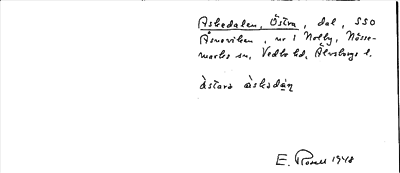 Askedalen, Östra, dal, SSO
Åsneviken, nr 1 Nolby, Nösse-
marks sn, Vedbo hd, Älvsborgs l.
àstara àskadạn
E. Rosell 1948